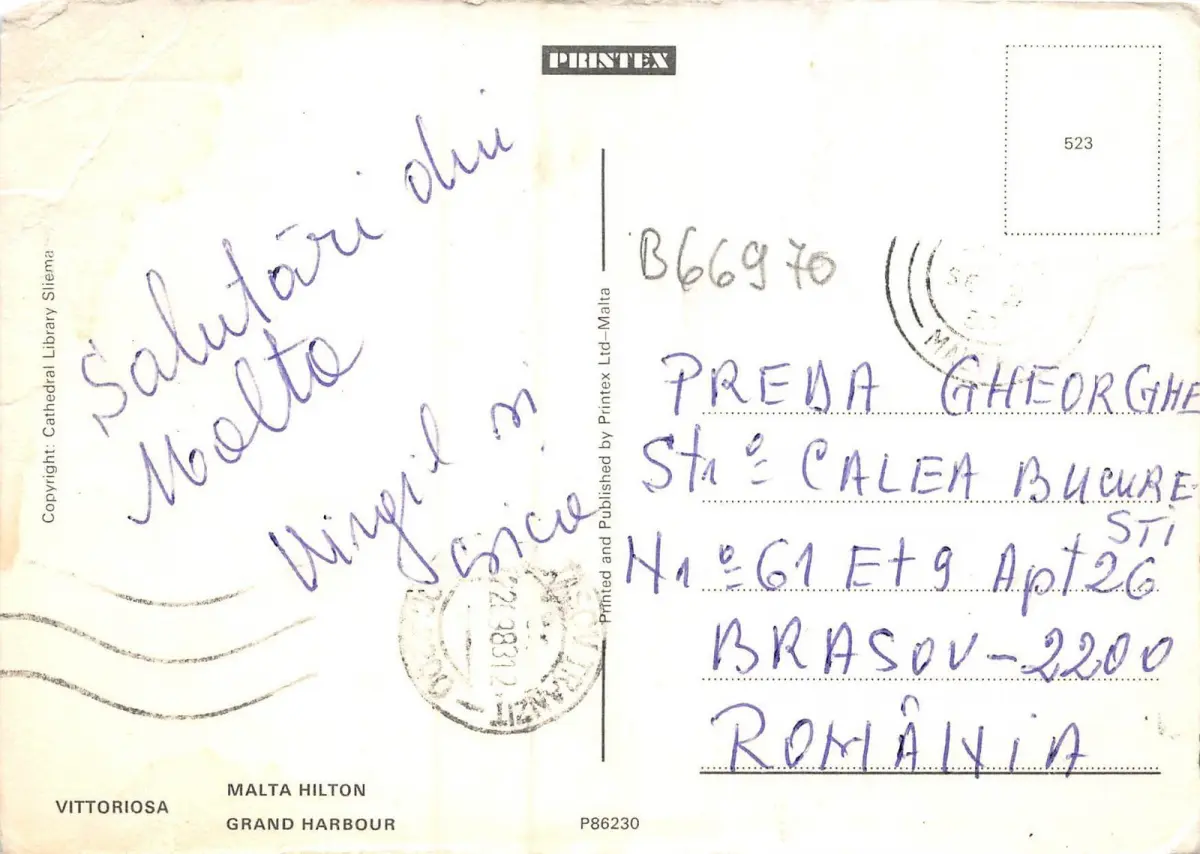 PRINTEX
523
Salutări din
Malta
Virgil si
B66970
PREDA GHEORGHE
Str: CALEA BUCURE-
STI
Nr: 61 Et 9 Apt 26
BRASOV-2200
ROMÂNIA
Copyright: Cathedral Library Sliema
Printed and Published by Printex Ltd—Malta
TRANZIT
VITTORIOSA
MALTA HILTON
GRAND HARBOUR
P86230